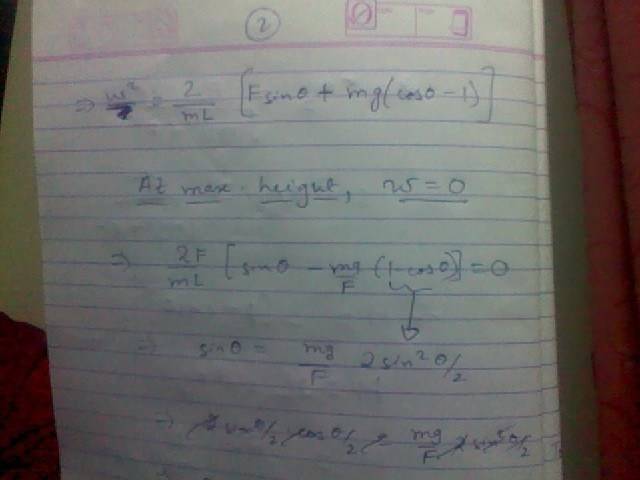 2
⇒ ω² = 2/mL [F sinθ + mg(cosθ - 1)]
At max. height, ω = 0
⇒ 2F/mL [sinθ - mg/F (1 - cosθ)] = 0
→ sinθ = mg/F 2sin²θ/2
→ 2 sinθ/2 cosθ/2 = mg/F 2 sin²θ/2